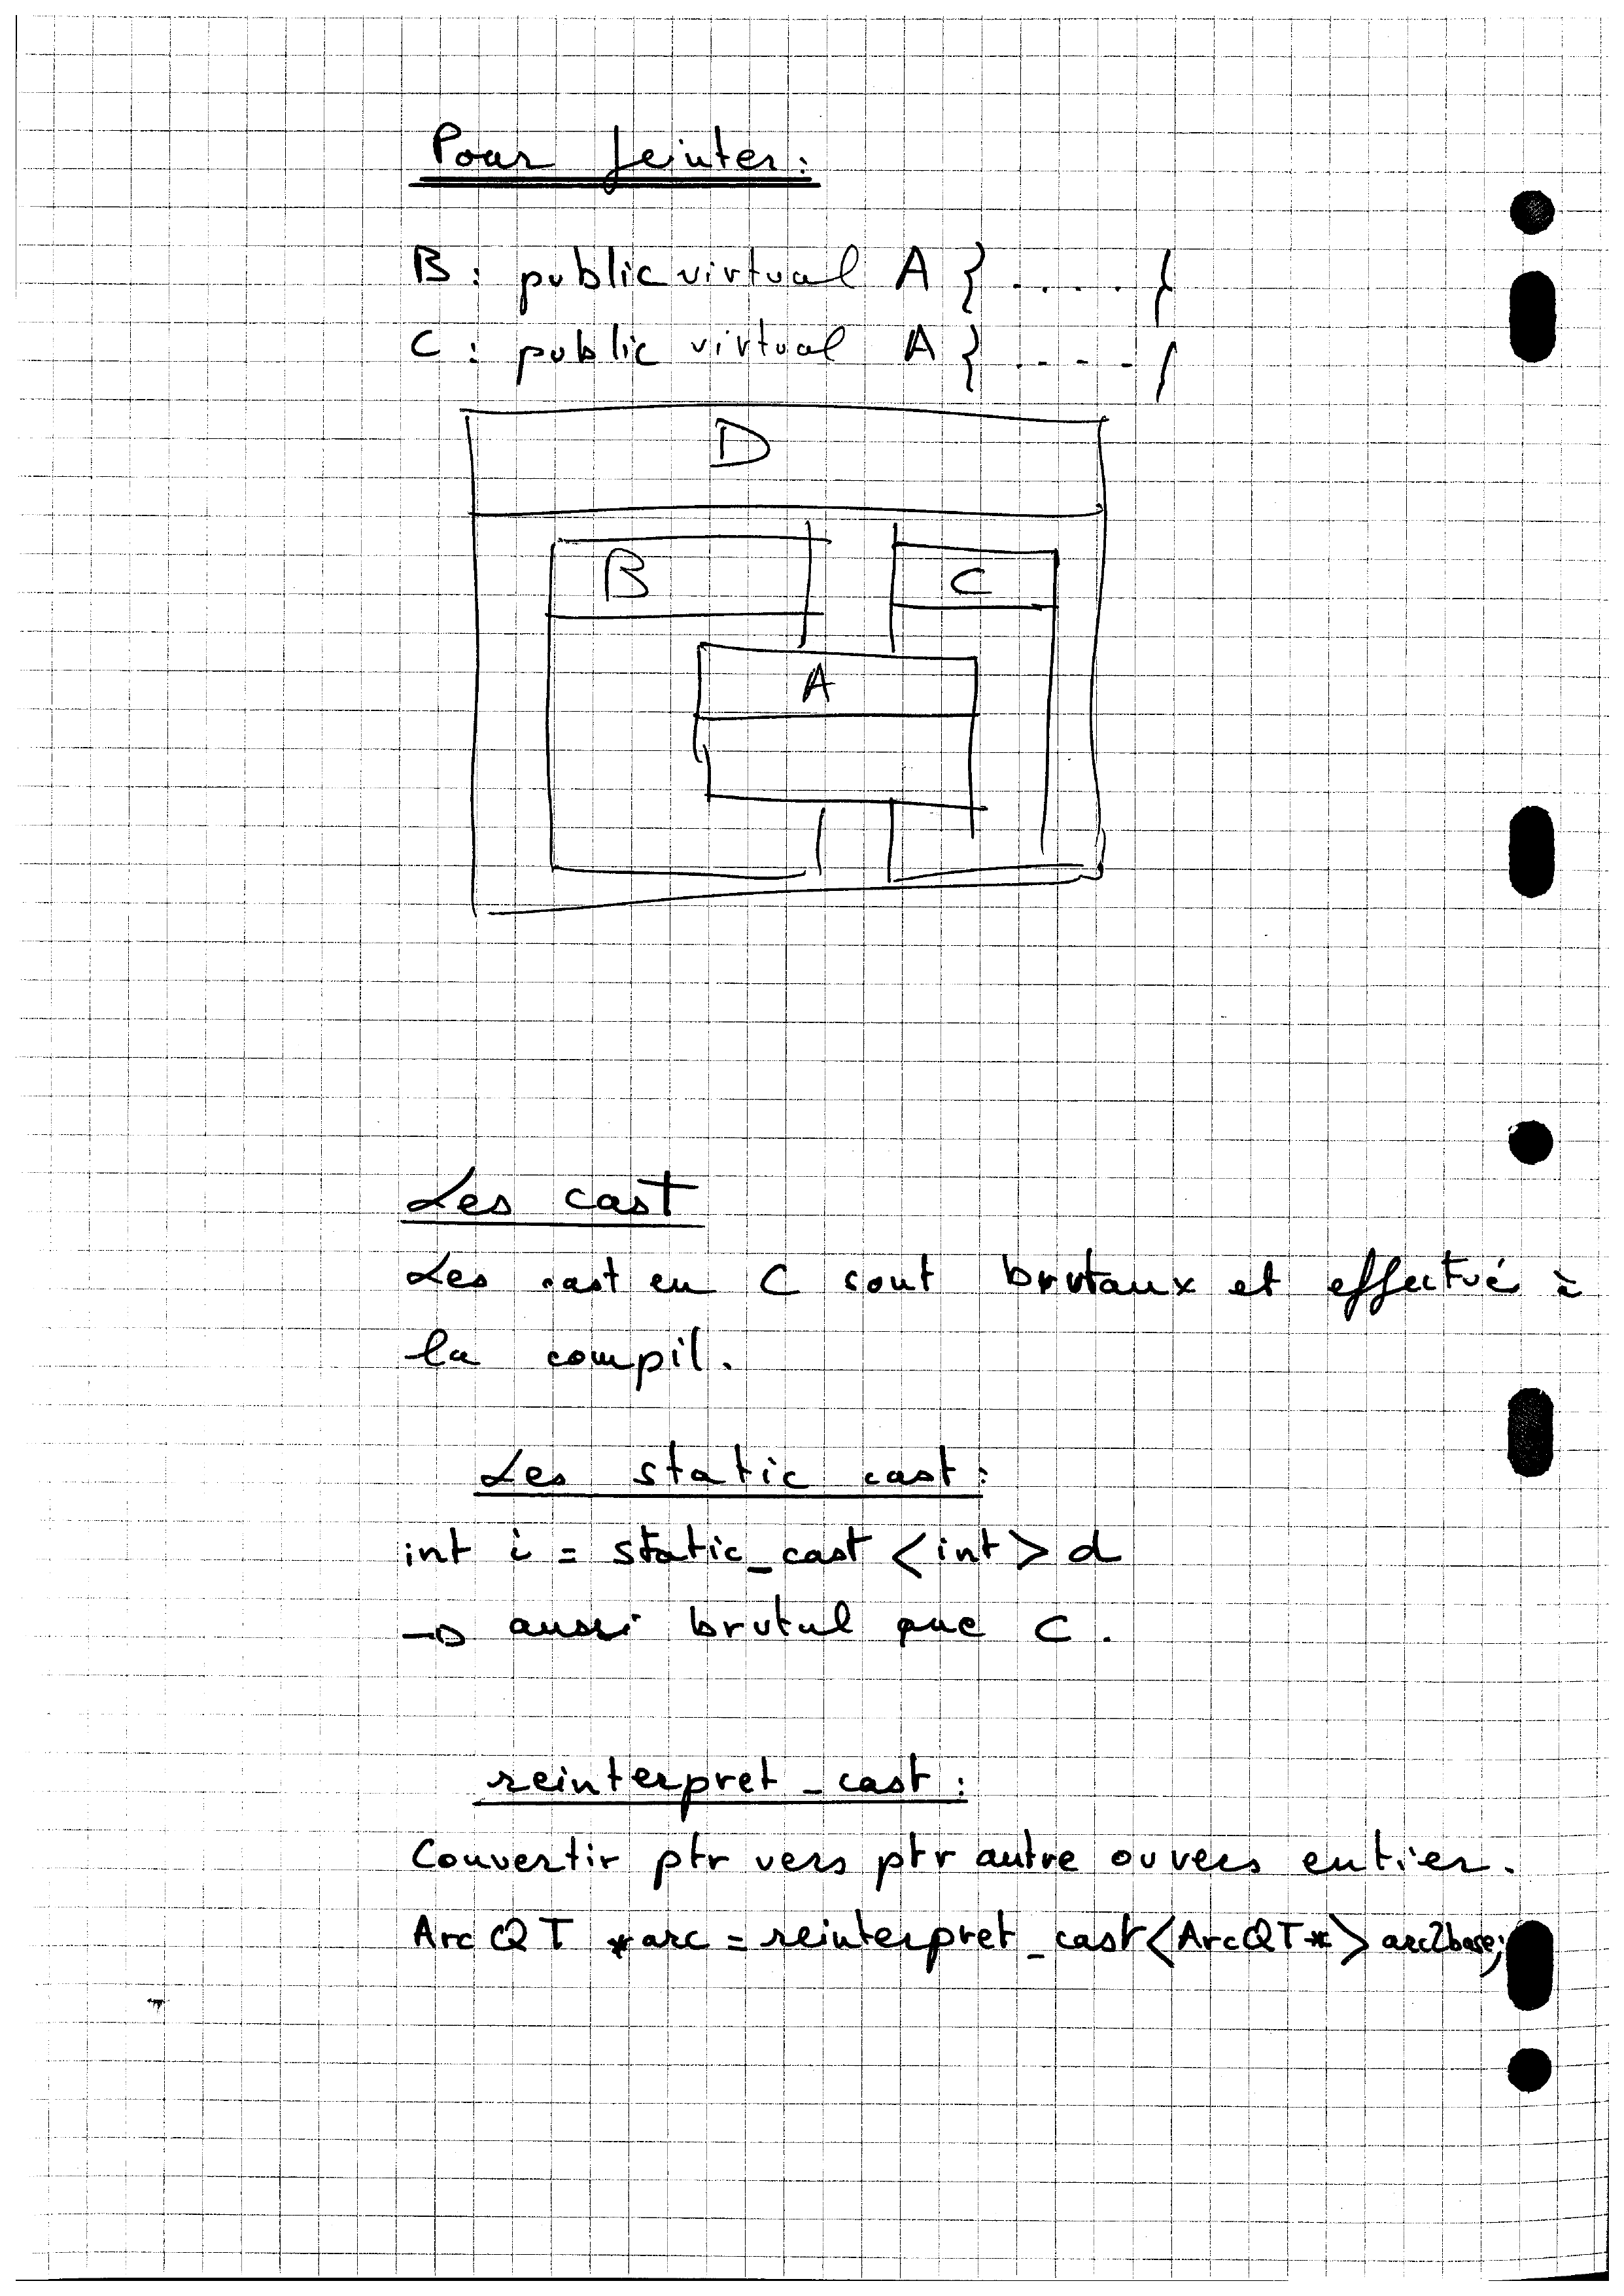 Pour feinter:
B : public virtual A } . . . . {
C : public virtual A } . . . . {
D
B
C
A
Les cast
Les cast en C sont brutaux et effectué à
la compil.
Les static cast:
int i = static_cast <int> d
→ aussi brutal que C.
reinterpret_cast :
Convertir ptr vers ptr autre ou vers entier.
ArcQT *arc = reinterpret_cast<ArcQT*> arc2base;